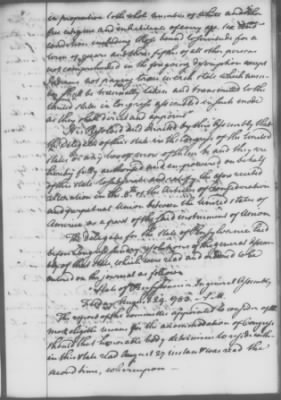 in proportion to the whole number of white and other
free citizens and inhabitants of every age sex and
condition including those bound to servitude for a
term of years and three fifths of all other persons
not comprehended in the foregoing description except
Indians not paying taxes in each state which number
shall be triennially taken and transmitted to the
United states in Congress assembled in such mode
as they shall direct and appoint
It is Resolved and directed by this Assembly that
the delegates of this state in the Congress of the United
states or any two or more of them be and they are
hereby fully authorised and empowered on behalf
of this state to subscribe and ratify the afore recited
alteration in the 8th of the Articles of confederation
and perpetual Union between the United states of
America as a part of the said instrument of Union
The delegates for the state of Pennsylvania laid
before Congress sundry resolutions of the general Assem
bly of that state, which were read and ordered to be
entered on the journal as follows
State of Pennsylvania In general Assembly
Friday August 29 1783. A.M.
The report of the committee appointed to consider of the
most eligible means for the accommodation of Congress
should that honorable body determine to reside with
in this state read August 27 instant was read the
second time, whereupon—